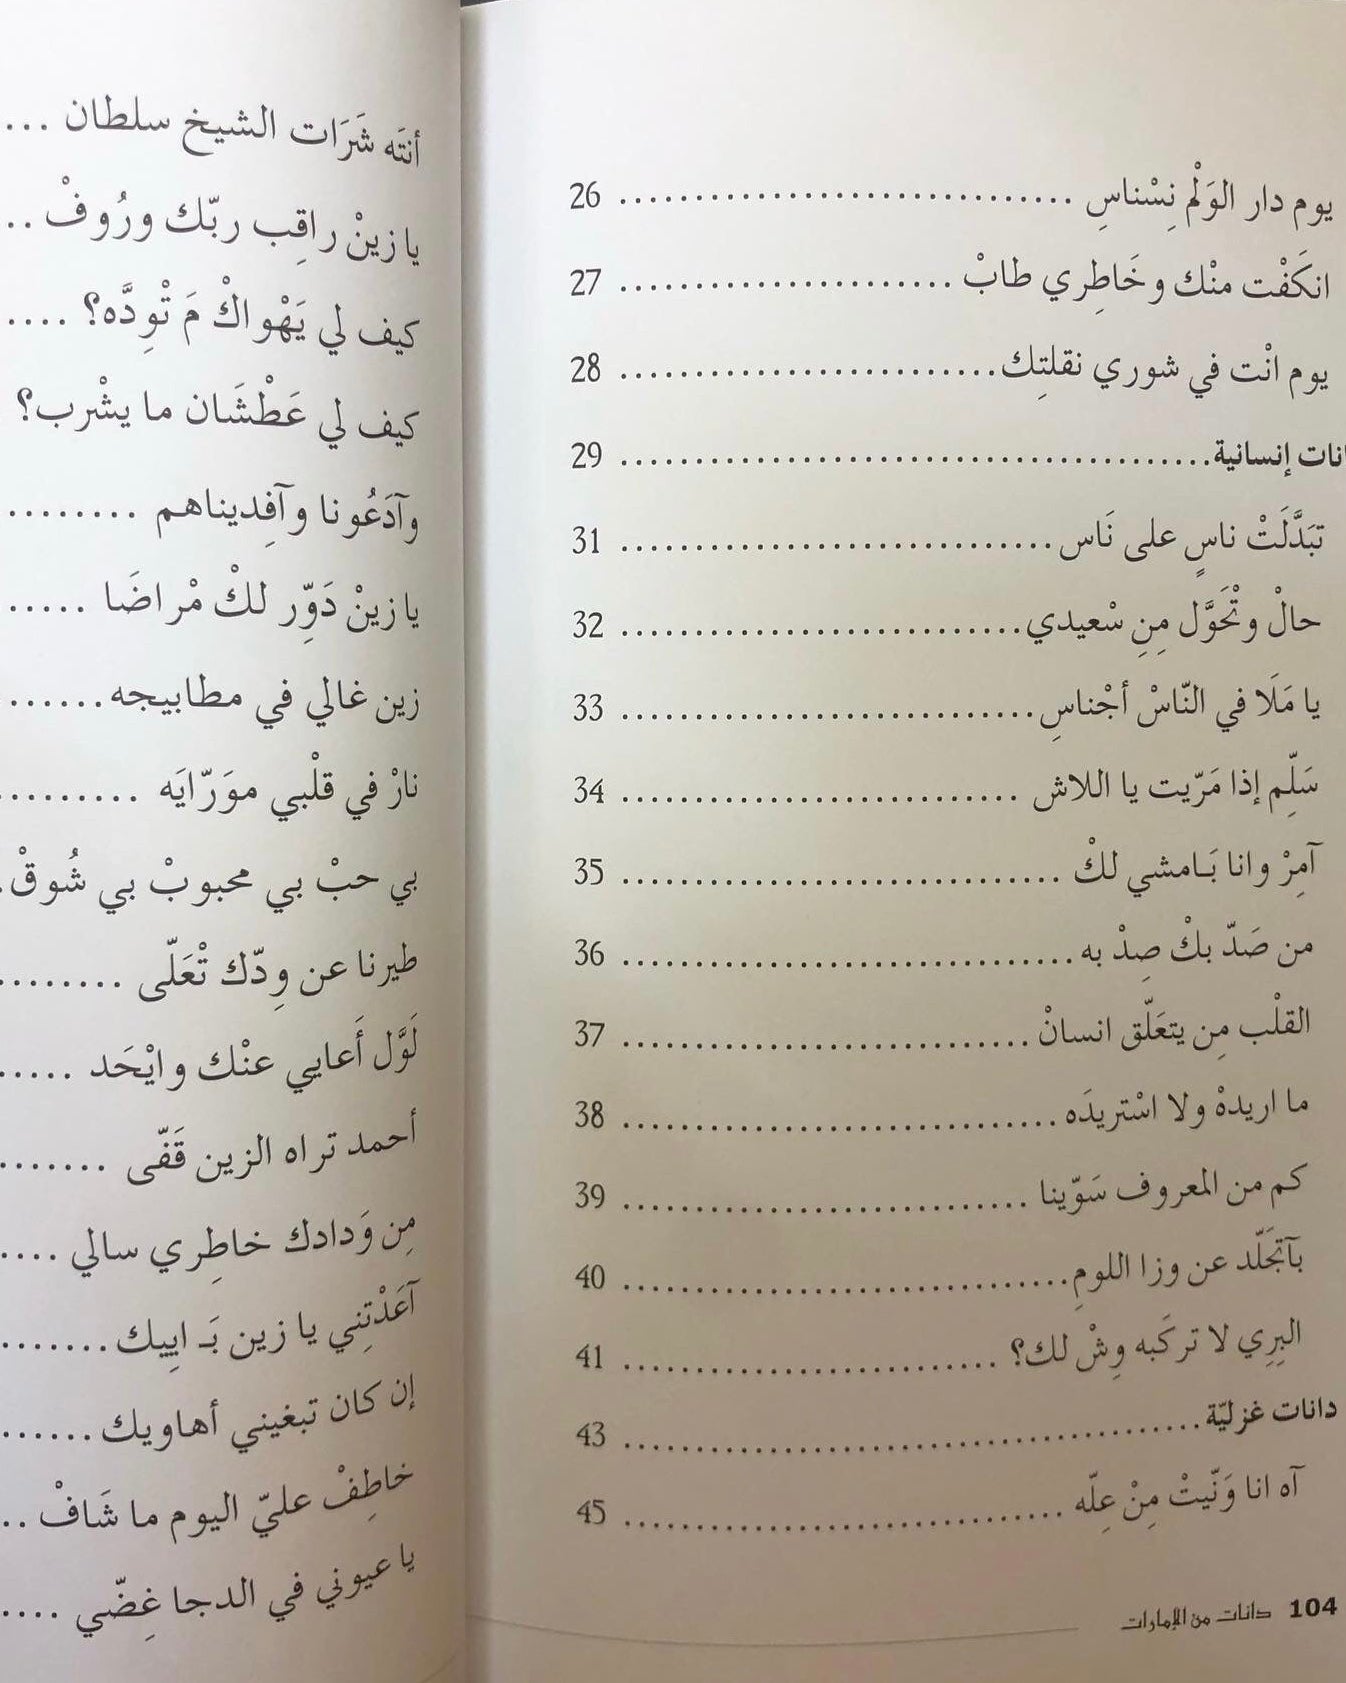 يوم دار الوَلْم نِسْناسِ ........................ 26
انكَفْت منْك وخَاطِري طابْ ........................ 27
يوم انْت في شوري نقلتِك ........................ 28
انات إنسانية ........................ 29
تبَدَّلَتْ ناسٍ على نَاس ........................ 31
حالْ وتْحَوَّل مِنِ سْعيدي ........................ 32
يا مَلَا في النّاسْ أجْناسِ ........................ 33
سَلِّم إذا مَرّيت يا اللاش ........................ 34
آمِرْ وانا بَـامشي لكْ ........................ 35
من صَدّ بكْ صِدْ به ........................ 36
القلْب مِن يتعَلّق انسانْ ........................ 37
ما اريدهْ ولا اسْتريدَه ........................ 38
كم من المعروف سَوّينا ........................ 39
بآتجَلّد عن وزا اللومِ ........................ 40
البِرِي لا تركَبه وِشْ لك؟ ........................ 41
دانات غزليّة ........................ 43
آه انا وَنّيتْ مِنْ عِلّه ........................ 45
104 دانات من الإمارات
أنتَه شَرَات الشيخ سلطان ...
يا زينْ راقِب ربّك ورُوفْ ..
كيف لي يَهْواكْ مَ تْوِدَّه؟ ....
كيف لي عَطْشَان ما يشْرب؟
وآدَعُونا وآفِديناهم ........
يا زينْ دَوِّر لكْ مْراضَا .....
زين غالي في مطابيجه ......
نارْ في قلْبي موَرّايَه .........
بي حبْ بي محبوبْ بي شُوقْ.
طيرنا عن وِدّك تْعَلّى ........
لَوَّل أَعايي عنْك وايْحَد .....
أحمد تراه الزين قَفّى .......
مِن وَدادك خاطِري سالي ....
آعَدْتِني يا زين بَـ اِييك .......
إن كان تبغيني أهاويك ......
خاطِفْ عليّ اليوم ما شَافْ ..
يا عيوني في الدجا غِضّي ....